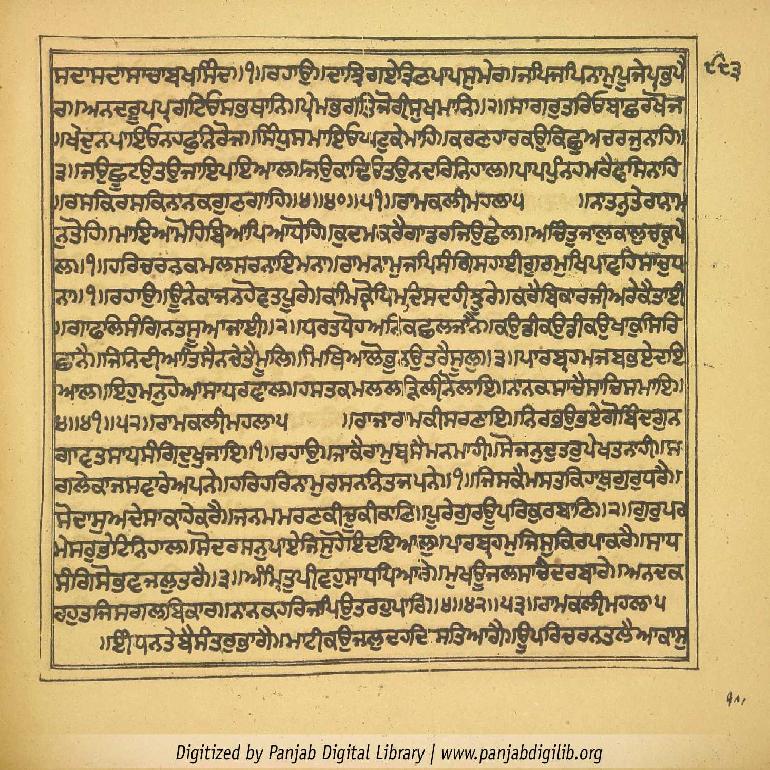 ਸਦਾਸਦਾਸਾਚਾਬਖਸਿੰਦ॥੧॥ਰਹਾਉ॥ਦਾਝਿਗਏਤ੍ਰਿਣਪਾਪਸੁਮੇਰ॥ਜਪਿਜਪਿਨਾਮੁਪੂਜੇਪ੍ਰਭੁਪੈ
ਰ॥ਅਨਦਰੂਪਪ੍ਰਗਟਿਓਸਭਥਾਨਿ॥ਪ੍ਰੇਮਭਗਤਿਜੋਰੀਸੁਖਮਾਨਿ॥੨॥ਸਾਗਰੁਤਰਿਓਬਾਛਰਖੋਜ
॥ਖੇਦੁਨਪਾਇਓਨਹਫੁਨਿਰੋਜ॥ਸਿੰਧੁਸਮਾਇਓਘਟੁਕੇਮਾਹਿ॥ਕਰਣਹਾਰਕਉਕਿਛੁਅਚਰਜੁਨਾਹਿ॥
੩॥ਜਉਛੂਟਉਤਉਜਾਇਪਇਆਲ॥ਜਉਕਾਢਿਓਤਉਨਦਰਿਨਿਹਾਲ॥ਪਾਪਪੁੰਨਹਮਰੈਵਸਿਨਾਹਿ
॥ਰਸਕਿਰਸਕਿਨਾਨਕਗੁਣਗਾਹਿ॥੪॥੪੦॥੫੧॥ਰਾਮਕਲੀਮਹਲਾ੫ ॥ਨਤਨੁਤੇਰਾਨਾਮ
ਨੁਤੋਹਿ॥ਮਾਇਆਮੋਹਿਬਿਆਪਿਆਧੋਹਿ॥ਕੁਦਮਕਰੈਗਾਡਰਜਿਉਛੇਲ॥ਅਚਿੰਤੁਜਾਲੁਕਾਲੁਚਕ੍ਰੁਪੇ
ਲ॥੧॥ਹਰਿਚਰਨਕਮਲਸਰਨਾਇਮਨਾ॥ਰਾਮਨਾਮੁਜਪਿਸੰਗਿਸਹਾਈਗੁਰਮੁਖਿਪਾਵਹਿਸਾਚੁਧ
ਨਾ॥੧॥ਰਹਾਉ॥ਊਨੇਕਾਜਨਹੋਵਤਪੂਰੇ॥ਕਾਮਿਕ੍ਰੋਧਿਮਦਿਸਦਹੀਝੂਰੇ॥ਕਰੈਬਿਕਾਰਜੀਅਰੇਕੈਤਾਈ
॥ਗਾਫਲਸੰਗਿਨਤਸੂਆਜਾਈ॥੨॥ਧਰਤਧੋਹਅਨਿਕਛਲਜਾਨੈ॥ਕਉਡੀਕਉਡੀਕਉਖਾਕੁਸਿਰਿ
ਛਾਨੈ॥ਜਿਨਿਦੀਆਤਿਸੈਨਚੇਤੈਮੂਲਿ॥ਮਿਥਿਆਲੋਭੁਨਉਤਰੈਸੂਲੁ॥੩॥ਪਾਰਬ੍ਰਹਮਜਬਭਏਦਇ
ਆਲ॥ਇਹੁਮਨੁਹੋਆਸਾਧਰਵਾਲ॥ਹਸਤਕਮਲਲੜਿਲੀਨੋਲਾਇ॥ਨਾਨਕਸਾਚੈਸਾਚਿਸਮਾਇ॥
੪॥੪੧॥੫੨॥ਰਾਮਕਲੀਮਹਲਾ੫ ॥ਰਾਜਾਰਾਮਕੀਸਰਣਾਇ॥ਨਿਰਭਉਭਏਗੋਬਿੰਦਗੁਨ
ਗਾਵਤਸਾਧਸੰਗਿਦੁਖੁਜਾਇ॥੧॥ਰਹਾਉ॥ਜਾਕੈਰਾਮੁਬਸੈਮਨਮਾਹੀ॥ਸੋਜਨੁਦੁਤਰੁਪੇਖਤਨਾਹੀ॥ਸ
ਗਲੇਕਾਜਸਵਾਰੇਅਪਨੇ॥ਹਰਿਹਰਿਨਾਮੁਰਸਨਨਿਤਜਪਨੇ॥੧॥ਜਿਸਕੈਮਸਤਕਿਹਾਥੁਗੁਰੁਧਰੈ॥
ਸੋਦਾਸੁਅਦੇਸਾਕਾਹੇਕਰੈ॥ਜਨਮਮਰਣਕੀਚੂਕੀਕਾਣਿ॥ਪੂਰੇਗੁਰਊਪਰਿਕੁਰਬਾਣਿ॥੨॥ਗੁਰੁਪਰ
ਮੇਸਰੁਭੇਟਿਨਿਹਾਲ॥ਸੋਦਰਸਨੁਪਾਏਜਿਸੁਹੋਇਦਇਆਲੁ॥ਪਾਰਬ੍ਰਹਮੁਜਿਸੁਕਿਰਪਾਕਰੈ॥ਸਾਧ
ਸੰਗਿਸੋਭਵਜਲੁਤਰੈ॥੩॥ਅੰਮ੍ਰਿਤੁਪੀਵਹੁਸਾਧਪਿਆਰੇ॥ਮੁਖਊਜਲਸਾਚੈਦਰਬਾਰੇ॥ਅਨਦਕ
ਰਹੁਤਜਿਸਗਲਬਿਕਾਰ॥ਨਾਨਕਹਰਿਜਪਿਉਤਰਹੁਪਾਰਿ॥੪॥੪੨॥੫੩॥ਰਾਮਕਲੀਮਹਲਾ੫
॥ਈਂਧਨਤੇਬੈਸੰਤਰੁਭਾਗੈ॥ਮਾਟੀਕਉਜਲੁਦਹਦਿਸਤਿਆਗੈ॥ਊਪਰਿਚਰਨਤਲੈਆਕਾਸੁ
Digitized by Panjab Digital Library | www.panjabdigilib.org